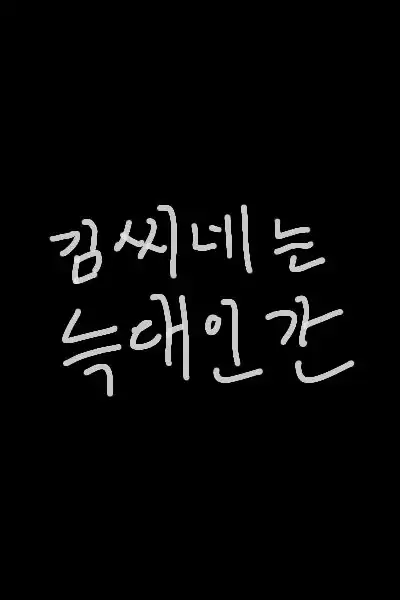 김씨네는
늑대인간